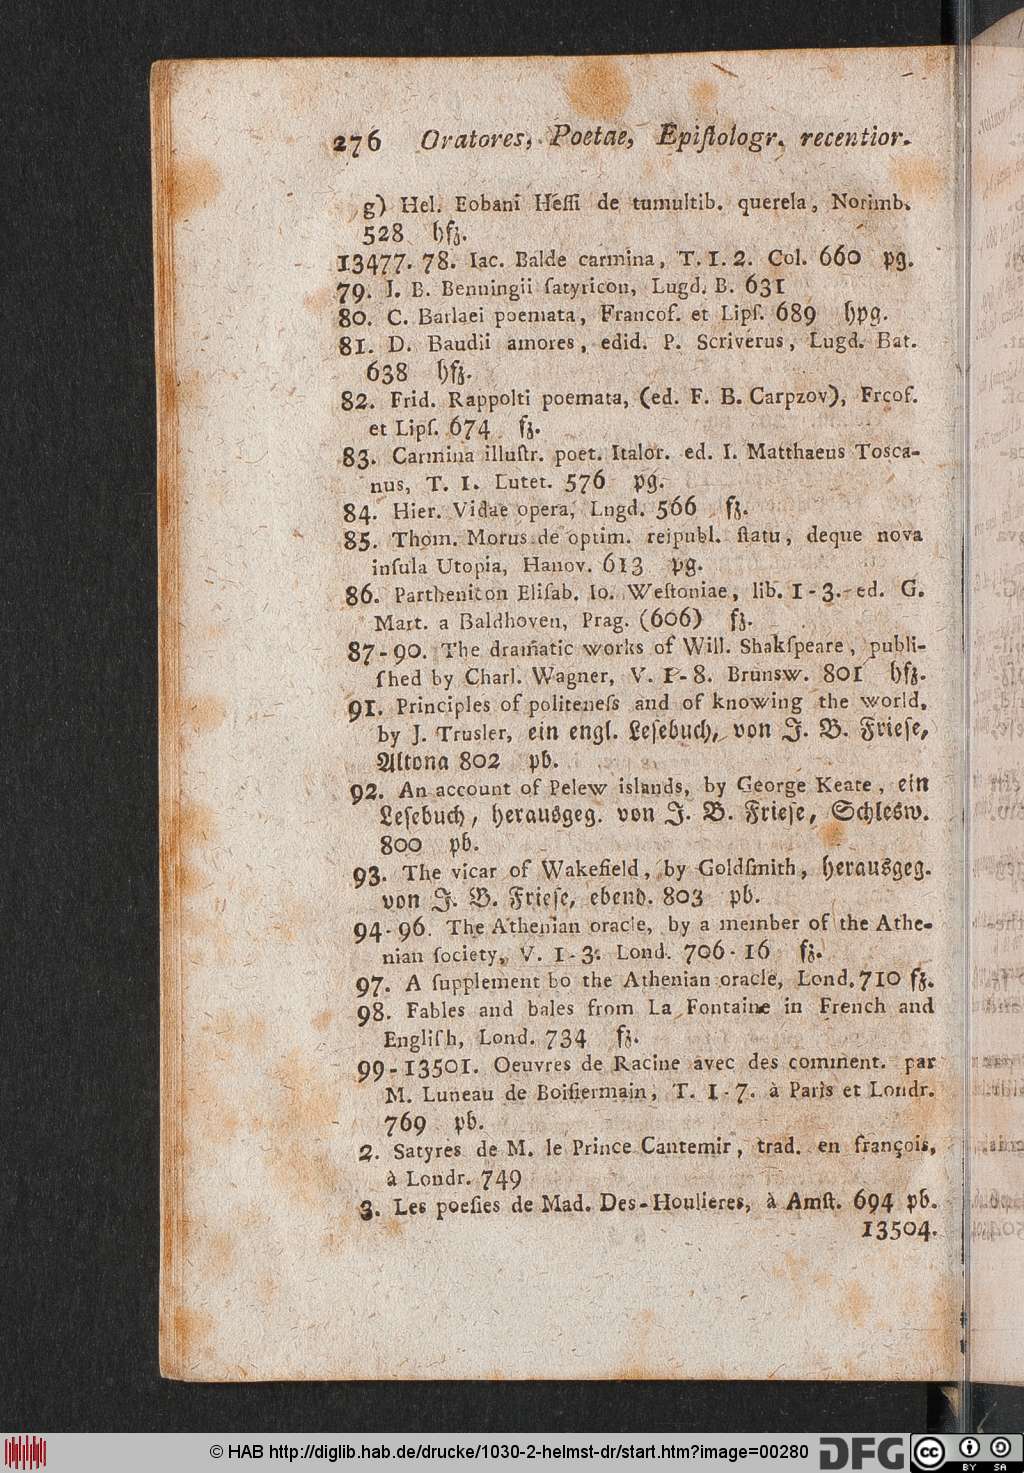 276 Oratores, Poetae, Epiſtologr. recentior.
g) Hel. Eobani Heſſi de tumultib. querela, Norimb.
528 hfz.
13477. 78. Iac. Balde carmina, T. 1. 2. Col. 660 pg.
79. J. B. Benningii ſatyricon, Lugd. B. 631
80. C. Barlaei poemata, Francof. et Lipſ. 689 hpg.
81. D. Baudii amores, edid. P. Scriverus, Lugd. Bat.
638 hfz.
82. Frid. Rappolti poemata, (ed. F. B. Carpzov), Frcof.
et Lipſ. 674 fz.
83. Carmina illuſtr. poet. Italor. ed. I. Matthaeus Tosca-
nus, T. 1. Lutet. 576 pg.
84. Hier. Vidae opera, Lngd. 566 fz.
85. Thom. Morus de optim. reipubl. ſtatu, deque nova
inſula Utopia, Hanov. 613 pg.
86. Parthenicon Eliſab. Io. Weſtoniae, lib. 1-3. ed. G.
Mart. a Baldhoven, Prag. (606) fz.
87-90. The dramatic works of Will. Shakſpeare, publi-
ſhed by Charl. Wagner, V. 1-8. Brunsw. 801 hfz.
91. Principles of politeneſs and of knowing the world,
by J. Trusler, ein engl. Leſebuch, von J. B. Frieſe,
Altona 802 pb.
92. An account of Pelew islands, by George Keate, ein
Leſebuch, herausgeg. von J. B. Frieſe, Schlesw.
800 pb.
93. The vicar of Wakefield, by Goldſmith, herausgeg.
von J. B. Frieſe, ebend. 803 pb.
94-96. The Athenian oracle, by a member of the Athe-
nian ſociety, V. 1-3. Lond. 706-16 fz.
97. A ſupplement bo the Athenian oracle, Lond. 710 fz.
98. Fables and bales from La Fontaine in French and
Engliſh, Lond. 734 fz.
99-13501. Oeuvres de Racine avec des comment. par
M. Luneau de Boiſiermain, T. 1-7. à Paris et Londr.
769 pb.
2. Satyres de M. le Prince Cantemir, trad. en françois,
à Londr. 749
3. Les poeſies de Mad. Des-Houlieres, à Amſt. 694 pb.
13504.
© HAB http://diglib.hab.de/drucke/1030-2-helmst-dr/start.htm?image=00280
DFG
cc
BY SA